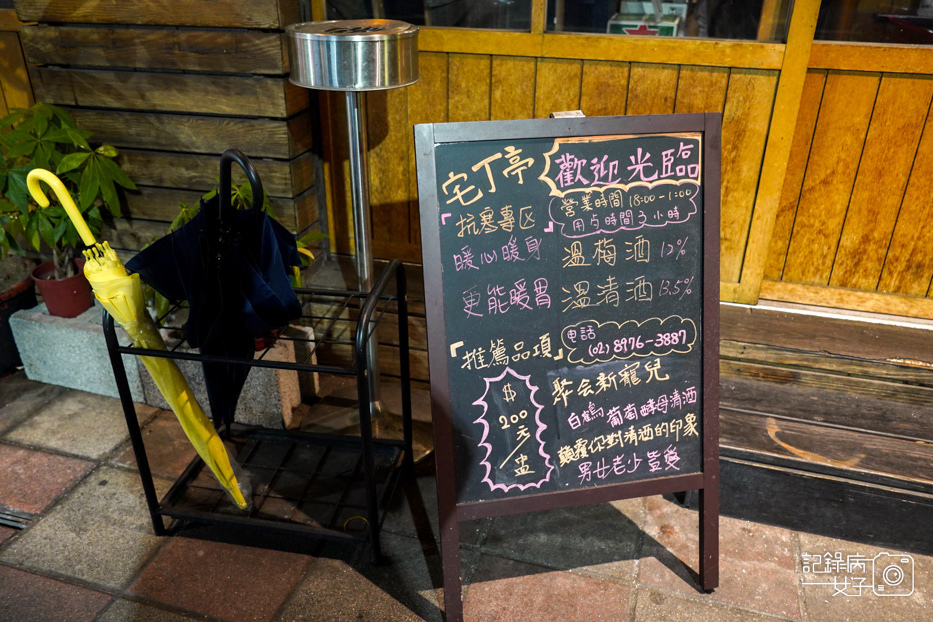 宅丁亭
歡迎光臨
營業時間 18:00-1:00
用歺時間 3小時
「抗寒專區」
暖心暖身 溫梅酒 12%
更能暖胃 溫清酒 13.5%
「推薦品項」
電話
(02) 8976-3887
$
200
元/盅
聚会新寵兒
白鶴 葡萄酵母清酒
顛覆你對清酒的印象
男女老少皆愛
記錄病
女子